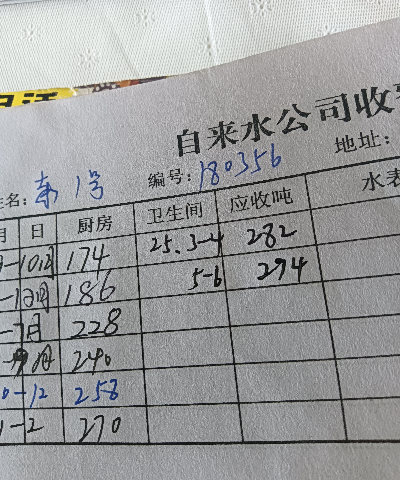 自来水公司收
名: 东1号 编号: 180356 地址:
月 日 厨房 卫生间 应收吨 水表
-10月 174 25.3-4 282
186 5-6 294
-7月 228
-9月 240
0-12 258
1-2 270